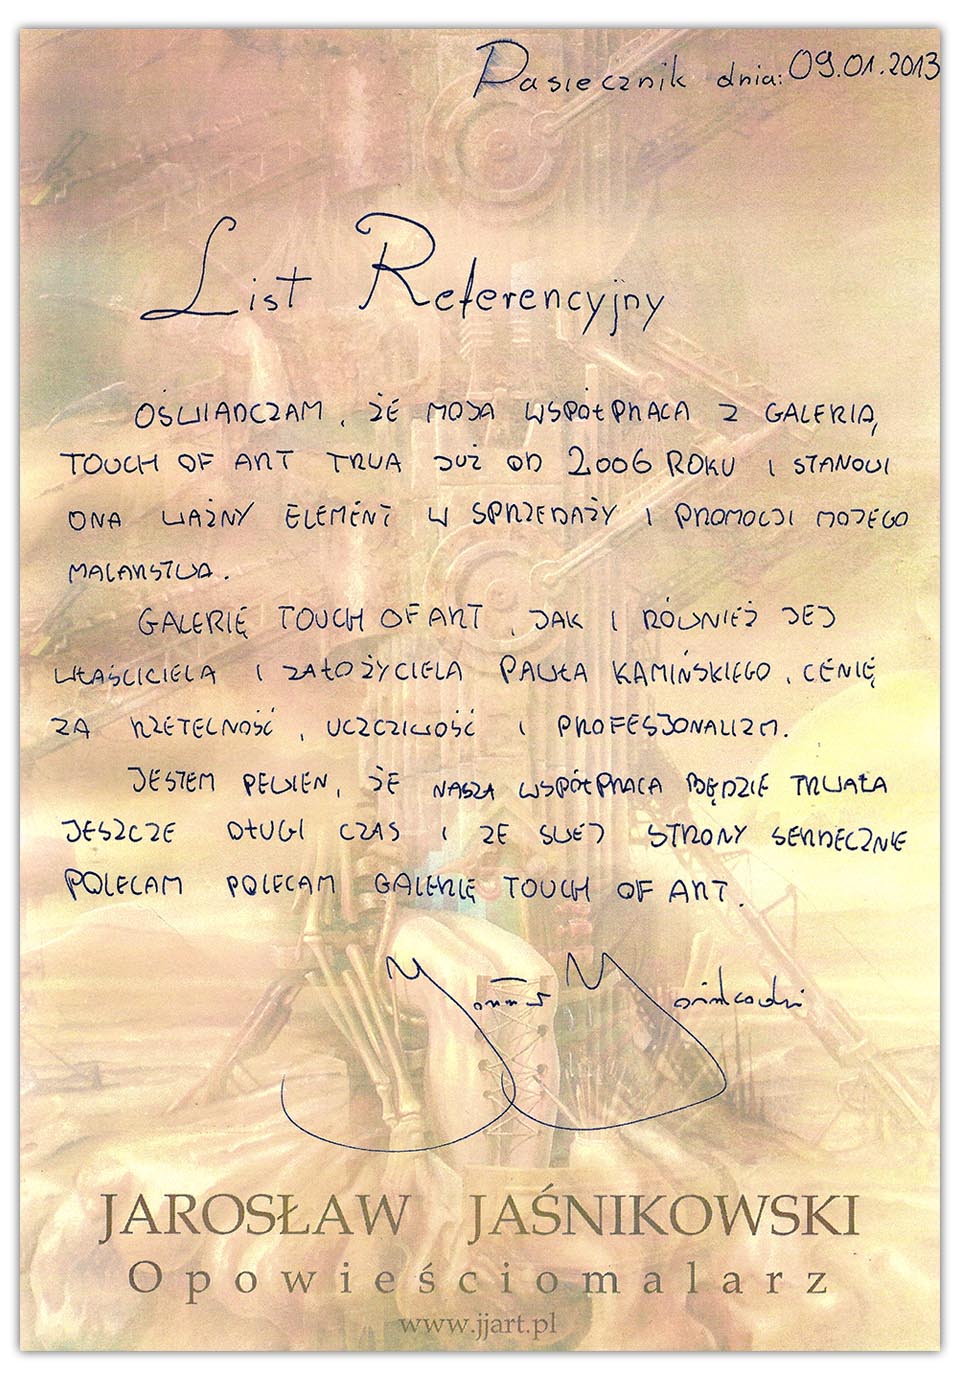 Pasiecznik dnia: 09.01.2013
List Referencyjny
OŚWIADCZAM, ŻE MOJA WSPÓŁPRACA Z GALERIĄ
TOUCH OF ART TRWA JUŻ OD 2006 ROKU I STANOWI
ONA WAŻNY ELEMENT W SPRZEDAŻY I PROMOCJI MOJEGO
MALARSTWA.
GALERIĘ TOUCH OF ART, JAK I RÓWNIEŻ JEJ
WŁAŚCICIELA I ZAŁOŻYCIELA PAWŁA KAMIŃSKIEGO, CENIĘ
ZA RZETELNOŚĆ, UCZCIWOŚĆ I PROFESJONALIZM.
JESTEM PEWIEN, ŻE NASZA WSPÓŁPRACA BĘDZIE TRWAŁA
JESZCZE DŁUGI CZAS I ZE SWEJ STRONY SERDECZNIE
POLECAM POLECAM GALERIĘ TOUCH OF ART.
JAROSŁAW JAŚNIKOWSKI
Opowieściomalarz
www.jjart.pl